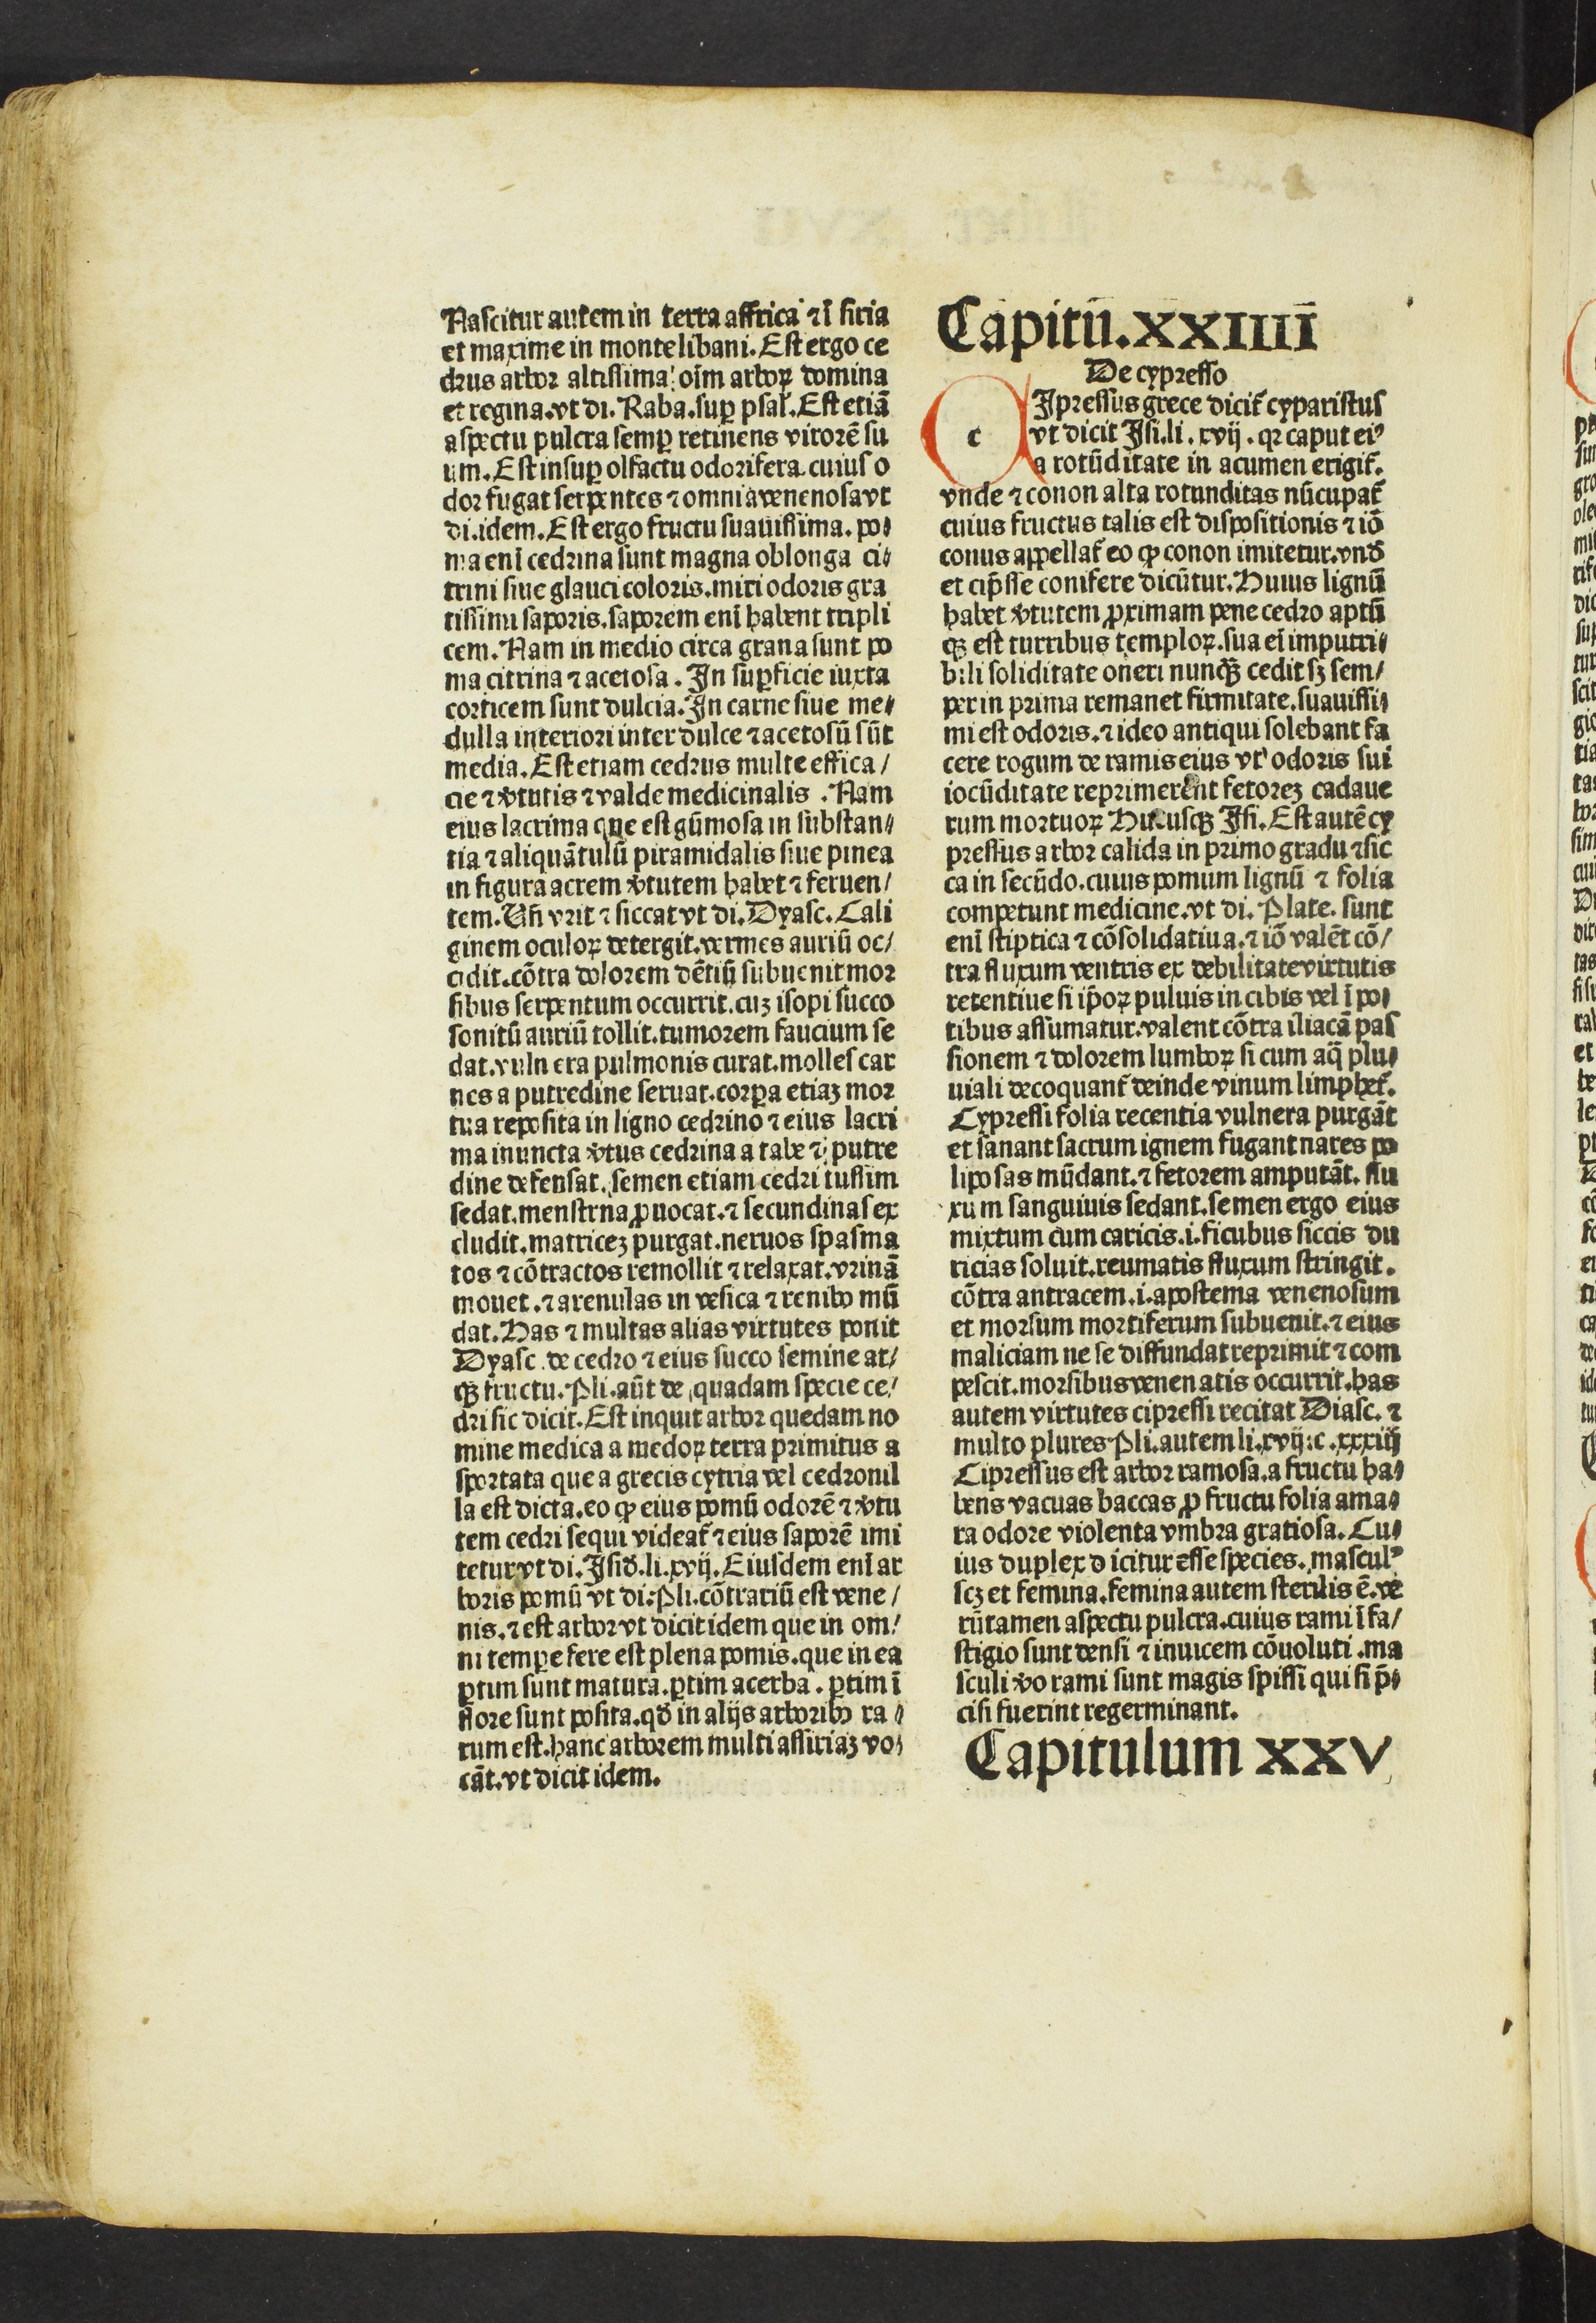 Nascitur autem in terra affrica ⁊ ī siria
et maxime in monte libani. Est ergo ce
drus arbor altissima: oīm arboꝝ domina
et regina. vt di. Raba. suꝑ psal̄. Est etiā
aspectu pulcra semꝑ retinens virorē su
um. Est insuꝑ olfactu odorifera cuius o
dor fugat serpentes ⁊ omnia venenosa vt
di. idem. Est ergo fructu suauissima. po⸗
ma enī cedrina sunt magna oblonga ci⸗
trini siue glauci coloris. miri odoris gra
tissimi saporis. saporem enī habent tripli
cem. Nam in medio circa grana sunt po
ma citrina ⁊ acetosa. In suꝑficie iuxta
corticem sunt dulcia. In carne siue me⸗
dulla interiori inter dulce ⁊ acetosū sūt
media. Est etiam cedrus multe effica/
cie ⁊ v̄tutis ⁊ valde medicinalis. Nam
eius lacrima que est gūmosa in substan⸗
tia ⁊ aliquātulū piramidalis siue pinea
in figura acrem v̄tutem habet ⁊ feruen/
tem. Vn̄ vrit ⁊ siccat vt di. Dyasc. Cali
ginem oculoꝝ detergit. vermes auriū oc/
cidit. cōtra dolorem dētiū subuenit mor
sibus serpentum occurrit. cuꝫ isopi succo
sonitū auriū tollit. tumorem faucium se
dat. vulnera pulmonis curat. molles car
nes a putredine seruat. corꝑa etiaꝫ mor
tua reposita in ligno cedrino ⁊ eius lacri
ma inuncta v̄tus cedrina a tabe ⁊ putre
dine defensat. semen etiam cedri tussim
sedat. menstrna ꝓuocat. ⁊ secundinas ex
cludit. matriceꝫ purgat. neruos spasma
tos ⁊ cōtractos remollit ⁊ relaxat. vrinā
mouet. ⁊ arenulas in vesica ⁊ renibꝰ mū
dat. Has ⁊ multas alias virtutes ponit
Dyasc. de cedro ⁊ eius succo semine at/
qꝫ fructu. Pli. aūt de quadam specie ce/
dri sic dicit. Est inquit arbor quedam no
mine medica a medoꝝ terra primitus a
sportata que a grecis cytria vel cedronil
la est dicta. eo ꝙ eius pomū odorē ⁊ v̄tu
tem cedri sequi videat̄ ⁊ eius saporē imi
tetur vt di. Isid̄. li. xvij. Eiusdem enī ar
boris pomū vt di. Pli. cōtrariū est vene/
nis. ⁊ est arbor vt dicit idem que in om/
ni tempe fere est plena pomis. que in ea
ꝑtim sunt matura. ꝑtim acerba. ꝑtim ī
flore sunt posita. qd̄ in alijs arboribꝰ ra⸗
rum est. hanc arborem multi assiriaꝫ vo⸗
cāt. vt dicit idem.
Capitū. XXIIII
De cypresso
c
Ipressus grece dicit̄ cyparistus
vt dicit Isi. li. xvij. qꝛ caput eiꝰ
a rotūditate in acumen erigit̄.
vnde ⁊ conon alta rotunditas nūcupat̄
cuius fructus talis est dispositionis ⁊ iō
conus appellat̄ eo ꝙ conon imitetur. vnd̄
et cip̄sse conifere dicūtur. Huius lignū
habet v̄tutem ꝓximam pene cedro aptū
qꝫ est turribus temploꝝ. sua eī imputri⸗
bili soliditate oneri nunqꝫ cedit sꝫ sem/
per in prima remanet firmitate. suauissi⸗
mi est odoris. ⁊ ideo antiqui solebant fa
cere rogum de ramis eius vt odoris sui
iocūditate reprimerent fetoreꝫ cadaue
rum mortuoꝝ Hucusqꝫ Isi. Est autē cy
pressus arbor calida in primo gradu ⁊ sic
ca in secūdo. cuius pomum lignū ⁊ folia
competunt medicine. vt di. Plate. sunt
enī stiptica ⁊ cōsolidatiua. ⁊ iō valēt cō/
tra fluxum ventris ex debilitate virtutis
retentiue si ip̄oꝝ puluis in cibis vel ī po⸗
tibus assumatur. valent cōtra iliacā pas
sionem ⁊ dolorem lumboꝝ si cum aq̄ plu⸗
uiali decoquant̄ deinde vinum limphet̄.
Cypressi folia recentia vulnera purgāt
et sanant sacrum ignem fugant nares po
liposas mūdant. ⁊ fetorem amputāt. flu
xum sanguiuis sedant. semen ergo eius
mixtum cum caricis. i. ficubus siccis du
ricias soluit. reumatis fluxum stringit.
cōtra antracem. i. apostema venenosum
et morsum mortiferum subuenit. ⁊ eius
maliciam ne se diffundat reprimit ⁊ com
pescit. morsibus venenatis occurrit. has
autem virtutes cipressi recitat Diasc. ⁊
multo plures Pli. autem li. xvij: c. xxxiij
Cipressus est arbor ramosa. a fructu ha⸗
bens vacuas baccas ꝓ fructu folia ama⸗
ra odore violenta vmbra gratiosa. Cu⸗
ius duplex dicitur esse species. masculꝰ
scꝫ et femina. femina autem sterilis ē. ve
rūtamen aspectu pulcra. cuius rami ī fa/
stigio sunt densi ⁊ inuicem cōuoluti. ma
sculi v̄o rami sunt magis spissi qui si p̄⸗
cisi fuerint regerminant.
Capitulum XXV